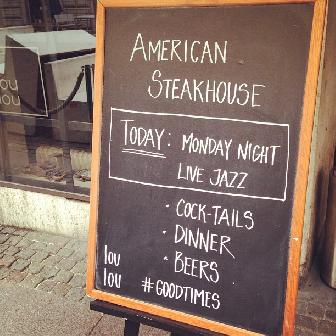 AMERICAN
STEAKHOUSE
TODAY: MONDAY NIGHT
LIVE JAZZ
· COCK-TAILS
· DINNER
· BEERS
lou
lou
#GOODTIMES
ou
lou